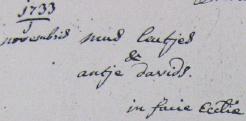 1733
novembris mus leutjes
&
antje davids.
in facie Eccliæ